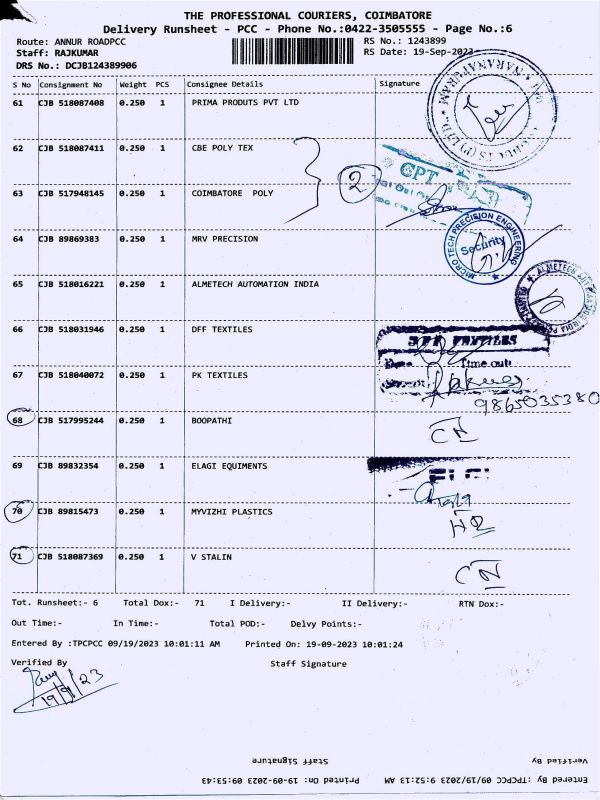 THE PROFESSIONAL COURIERS, COIMBATORE
Delivery Runsheet - PCC - Phone No.:0422-3505555 - Page No.:6
Route: ANNUR ROADPCC RS No.: 1243899
Staff: RAJKUMAR RS Date: 19-Sep-2023
DRS No.: DCJB124389906
S No Consignment No Weight PCS Consignee Details Signature
61 CJB 518087408 0.250 1 PRIMA PRODUTS PVT LTD
NARANAPURAM
62 CJB 518087411 0.250 1 CBE POLY TEX
CPT
2
63 CJB 517948145 0.250 1 COIMBATORE POLY
64 CJB 89869383 0.250 1 MRV PRECISION
MICRO TECH PRECISION ENGINEERING
Security
65 CJB 518016221 0.250 1 ALMETECH AUTOMATION INDIA
66 CJB 518031946 0.250 1 DFF TEXTILES
DFF TEXTILES
Time out:
67 CJB 518040072 0.250 1 PK TEXTILES
9865035380
68 CJB 517995244 0.250 1 BOOPATHI
CN
69 CJB 89832354 0.250 1 ELAGI EQUIMENTS
70 CJB 89815473 0.250 1 MYVIZHI PLASTICS
71 CJB 518087369 0.250 1 V STALIN
CN
Tot. Runsheet:- 6 Total Dox:- 71 I Delivery:- II Delivery:- RTN Dox:-
Out Time:- In Time:- Total POD:- Delvy Points:-
Entered By :TPCPCC 09/19/2023 10:01:11 AM Printed On: 19-09-2023 10:01:24
Verified By Staff Signature
19/9/23
Verified By Staff Signature
Entered By :TPCPCC 09/19/2023 9:52:13 AM Printed On: 19-09-2023 09:53:43